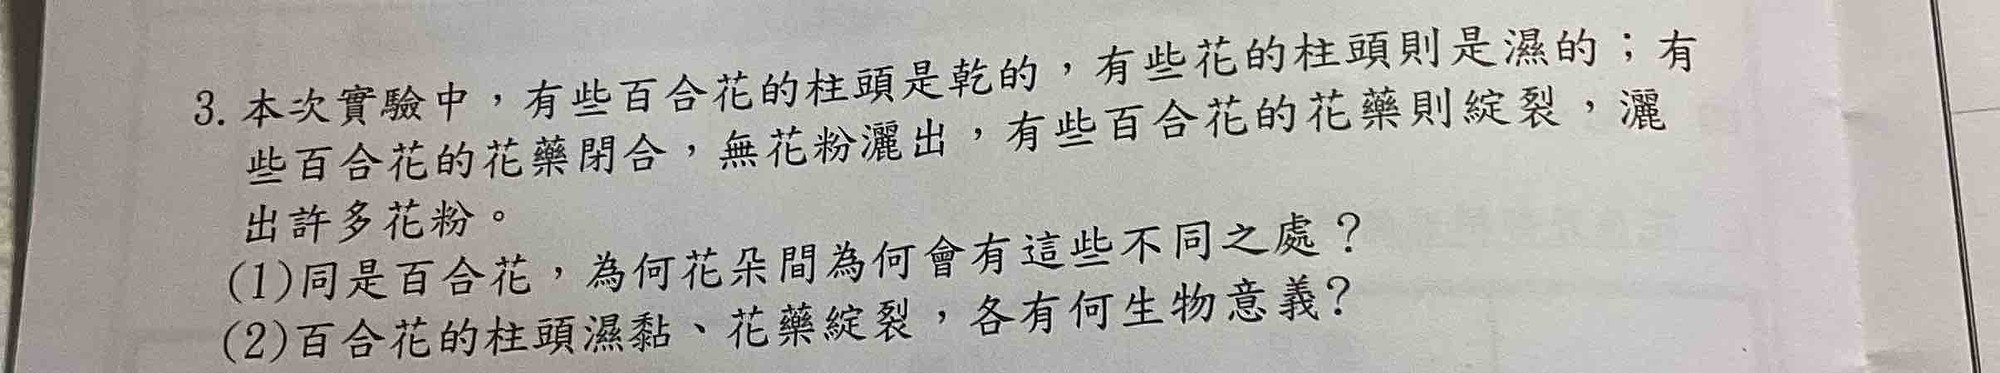 3. 本次實驗中，有些百合花的柱頭是乾的，有些花的柱頭則是濕的；有
些百合花的花藥閉合，無花粉灑出，有些百合花的花藥則綻裂，灑
出許多花粉。
(1)同是百合花，為何花朵間為何會有這些不同之處？
(2)百合花的柱頭濕黏、花藥綻裂，各有何生物意義？